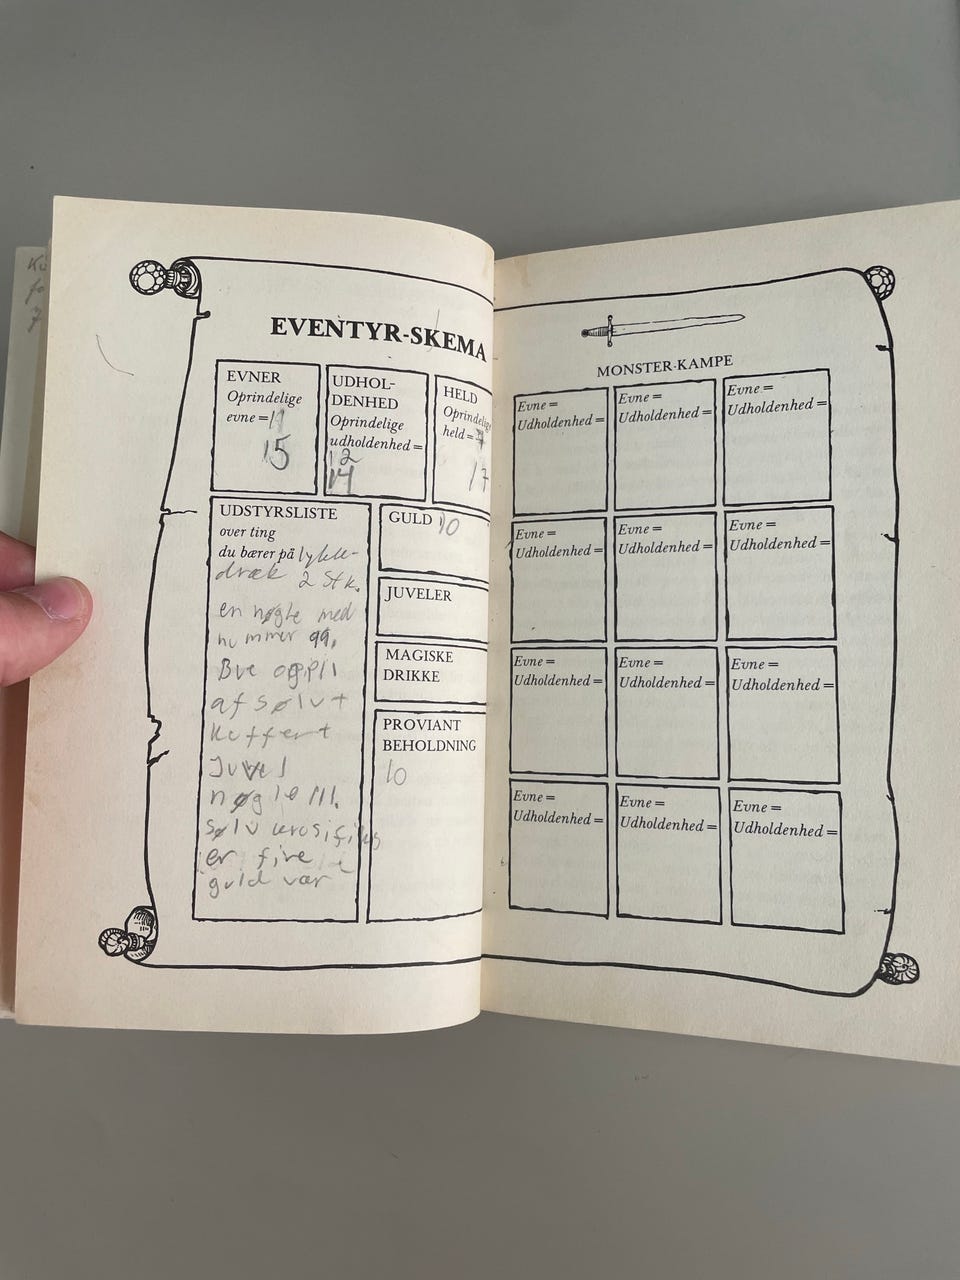 EVENTYR-SKEMA
EVNER
Oprindelige
evne = 11
15
UDHOL-
DENHED
Oprindelige
udholdenhed =
12
14
HELD
Oprindelige
held =
17
UDSTYRSLISTE
over ting
du bærer på lykke-
dræk 2 Stk.
en nøgle med
nummer 99.
Bue og
af sølvt
Juvel
nøgle 111.
sølv
er fire
guld vær
GULD 10
JUVELER
MAGISKE
DRIKKE
PROVIANT
BEHOLDNING
10
MONSTER-KAMPE
Evne =
Udholdenhed =
Evne =
Udholdenhed =
Evne =
Udholdenhed =
Evne =
Udholdenhed =
Evne =
Udholdenhed =
Evne =
Udholdenhed =
Evne =
Udholdenhed =
Evne =
Udholdenhed =
Evne =
Udholdenhed =
Evne =
Udholdenhed =
Evne =
Udholdenhed =
Evne =
Udholdenhed =